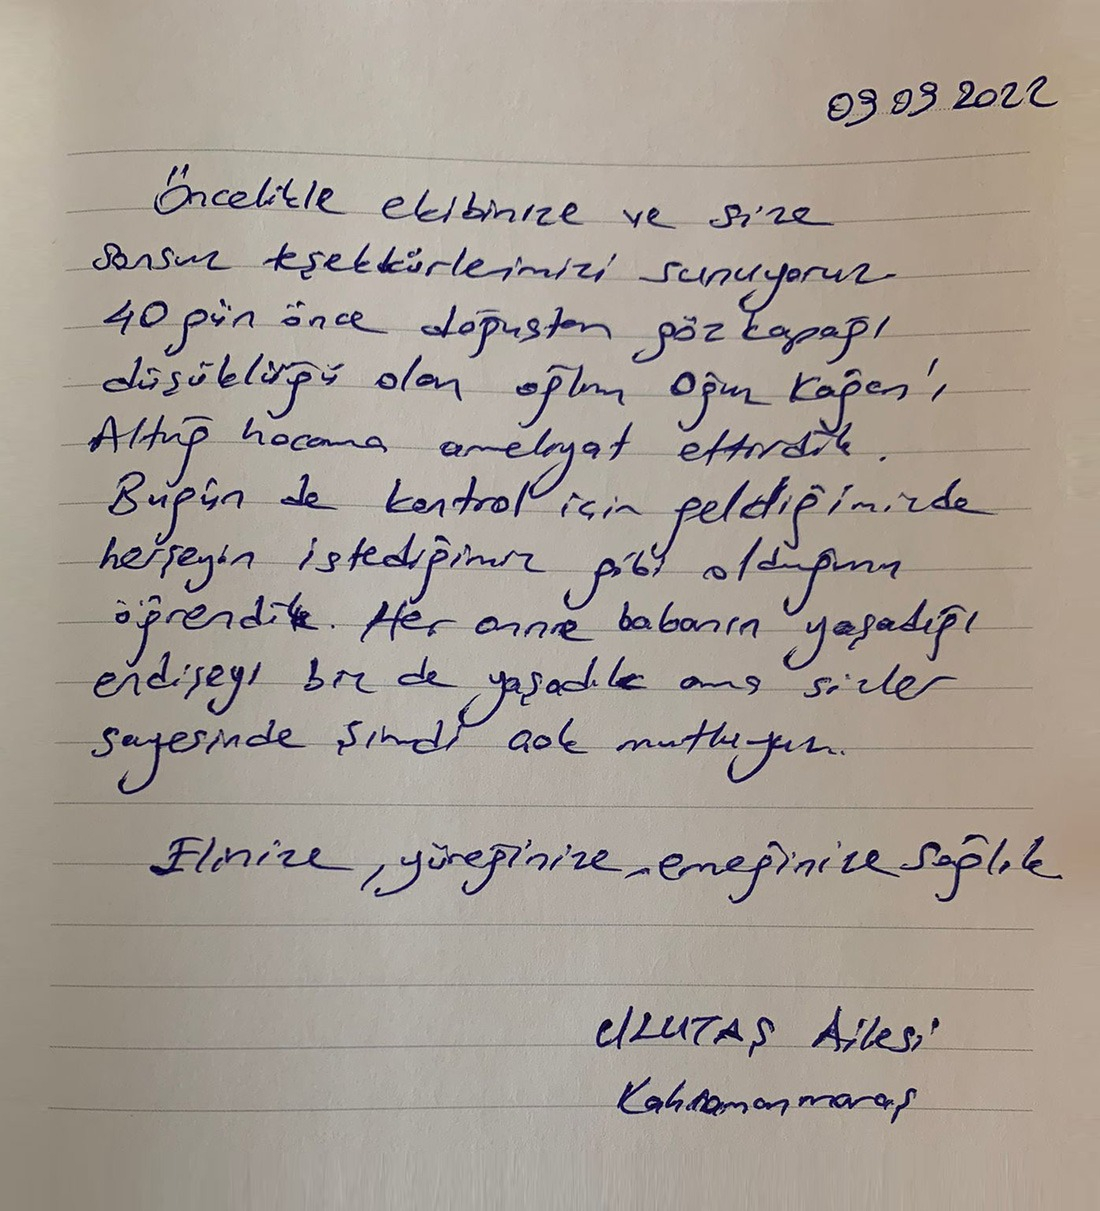 09 09 2022
Öncelikle ekibinize ve size
sonsuz teşekkürlerimizi sunuyoruz
40 gün önce doğuştan göz kapağı
düşüklüğü olan oğlum Oğuz Kağan'ı
Altuğ hocama ameliyat ettirdik.
Bugün de kontrol için geldiğimizde
herşeyin istediğimiz gibi olduğunu
öğrendik. Her anne babanın yaşadığı
endişeyi biz de yaşadık ama sizler
sayesinde şimdi çok mutluyuz.
Elinize, yüreğinize, emeğinize sağlık
ULUTAŞ Ailesi
Kahramanmaraş